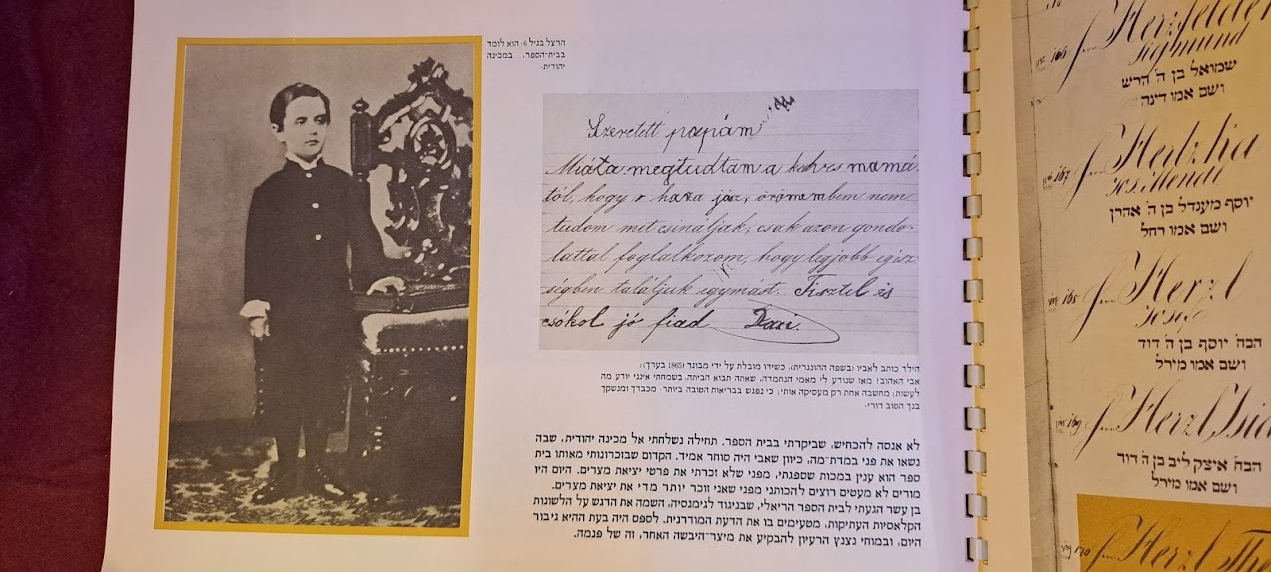 הרצל בגיל 6: הוא לומד
בבית־הספר, במכינה
יהודית.
Szeretett papám
Miáta megtudtam a kedves mamá-
tól, hogy haza jösz, örömemben nem
tudom mit csináljak; csak azon gondo-
lattal foglalkozom, hogy legjobb egész-
ségben találjuk egymást. Tisztel és
csókol jó fiad Dori.
הילד כותב לאביו (בשפה ההונגרית), כשידו מובלת על ידי מבוגר (1865 בערך):
אבי האהוב! מאז שנודע לי מאמי הנחמדה, שאתה תבוא הביתה, בשמחתי אינני יודע מה
לעשות; מחשבה אחת רק מעסיקה אותי: כי נפגש בבריאות הטובה ביותר. מכבדך ומנשקך
בנך הטוב דורי.
לא אנסה להכחיש, שביקרתי בבית הספר. תחילה נשלחתי אל מכינה יהודית, שבה
נשאו את פני במדת־מה, כיוון שאבי היה סוחר אמיד. הקדום שבזכרונותי מאותו בית
ספר הוא ענין במכות שספגתי, מפני שלא זכרתי את פרטי יציאת מצרים. היום היו
מורים לא מעטים רוצים להכותני מפני שאני זוכר יותר מדי את יציאת מצרים.
בן עשר הגעתי לבית הספר הריאלי, שבניגוד לגימנסיה, השמה את הדגש על הלשונות
הקלאסיות העתיקות, מטעימים בו את הדעת המודרנית. לספס היה בעת ההיא גיבור
היום, ובמוחי נצנץ הרעיון להבקיע את מיצר־היבשה האחר, זה של פנמה.
166 Herzfelder
Sigmund
שמואל בן ה' הרש
ושם אמו דינה
167 Hertzka
Mendl
יוסף מענדל בן ה' אהרן
ושם אמו רחל
168 Herzl
Josef
הבה' יוסף בן ה' דוד
ושם אמו מירל
169 Herzl Isid
הבה' איצק ליב בן ה' דוד
ושם אמו מירל
170 Herzl The